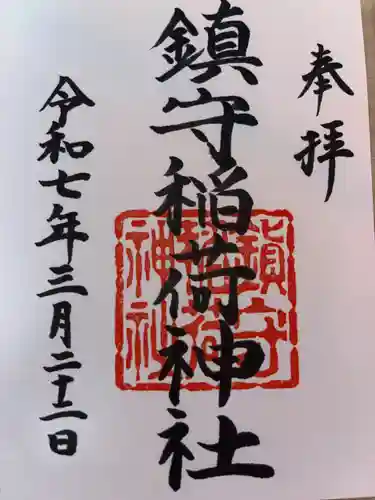 奉拝
鎮守稲荷神社
鎮守
稲荷
神社
令和七年三月二十一日